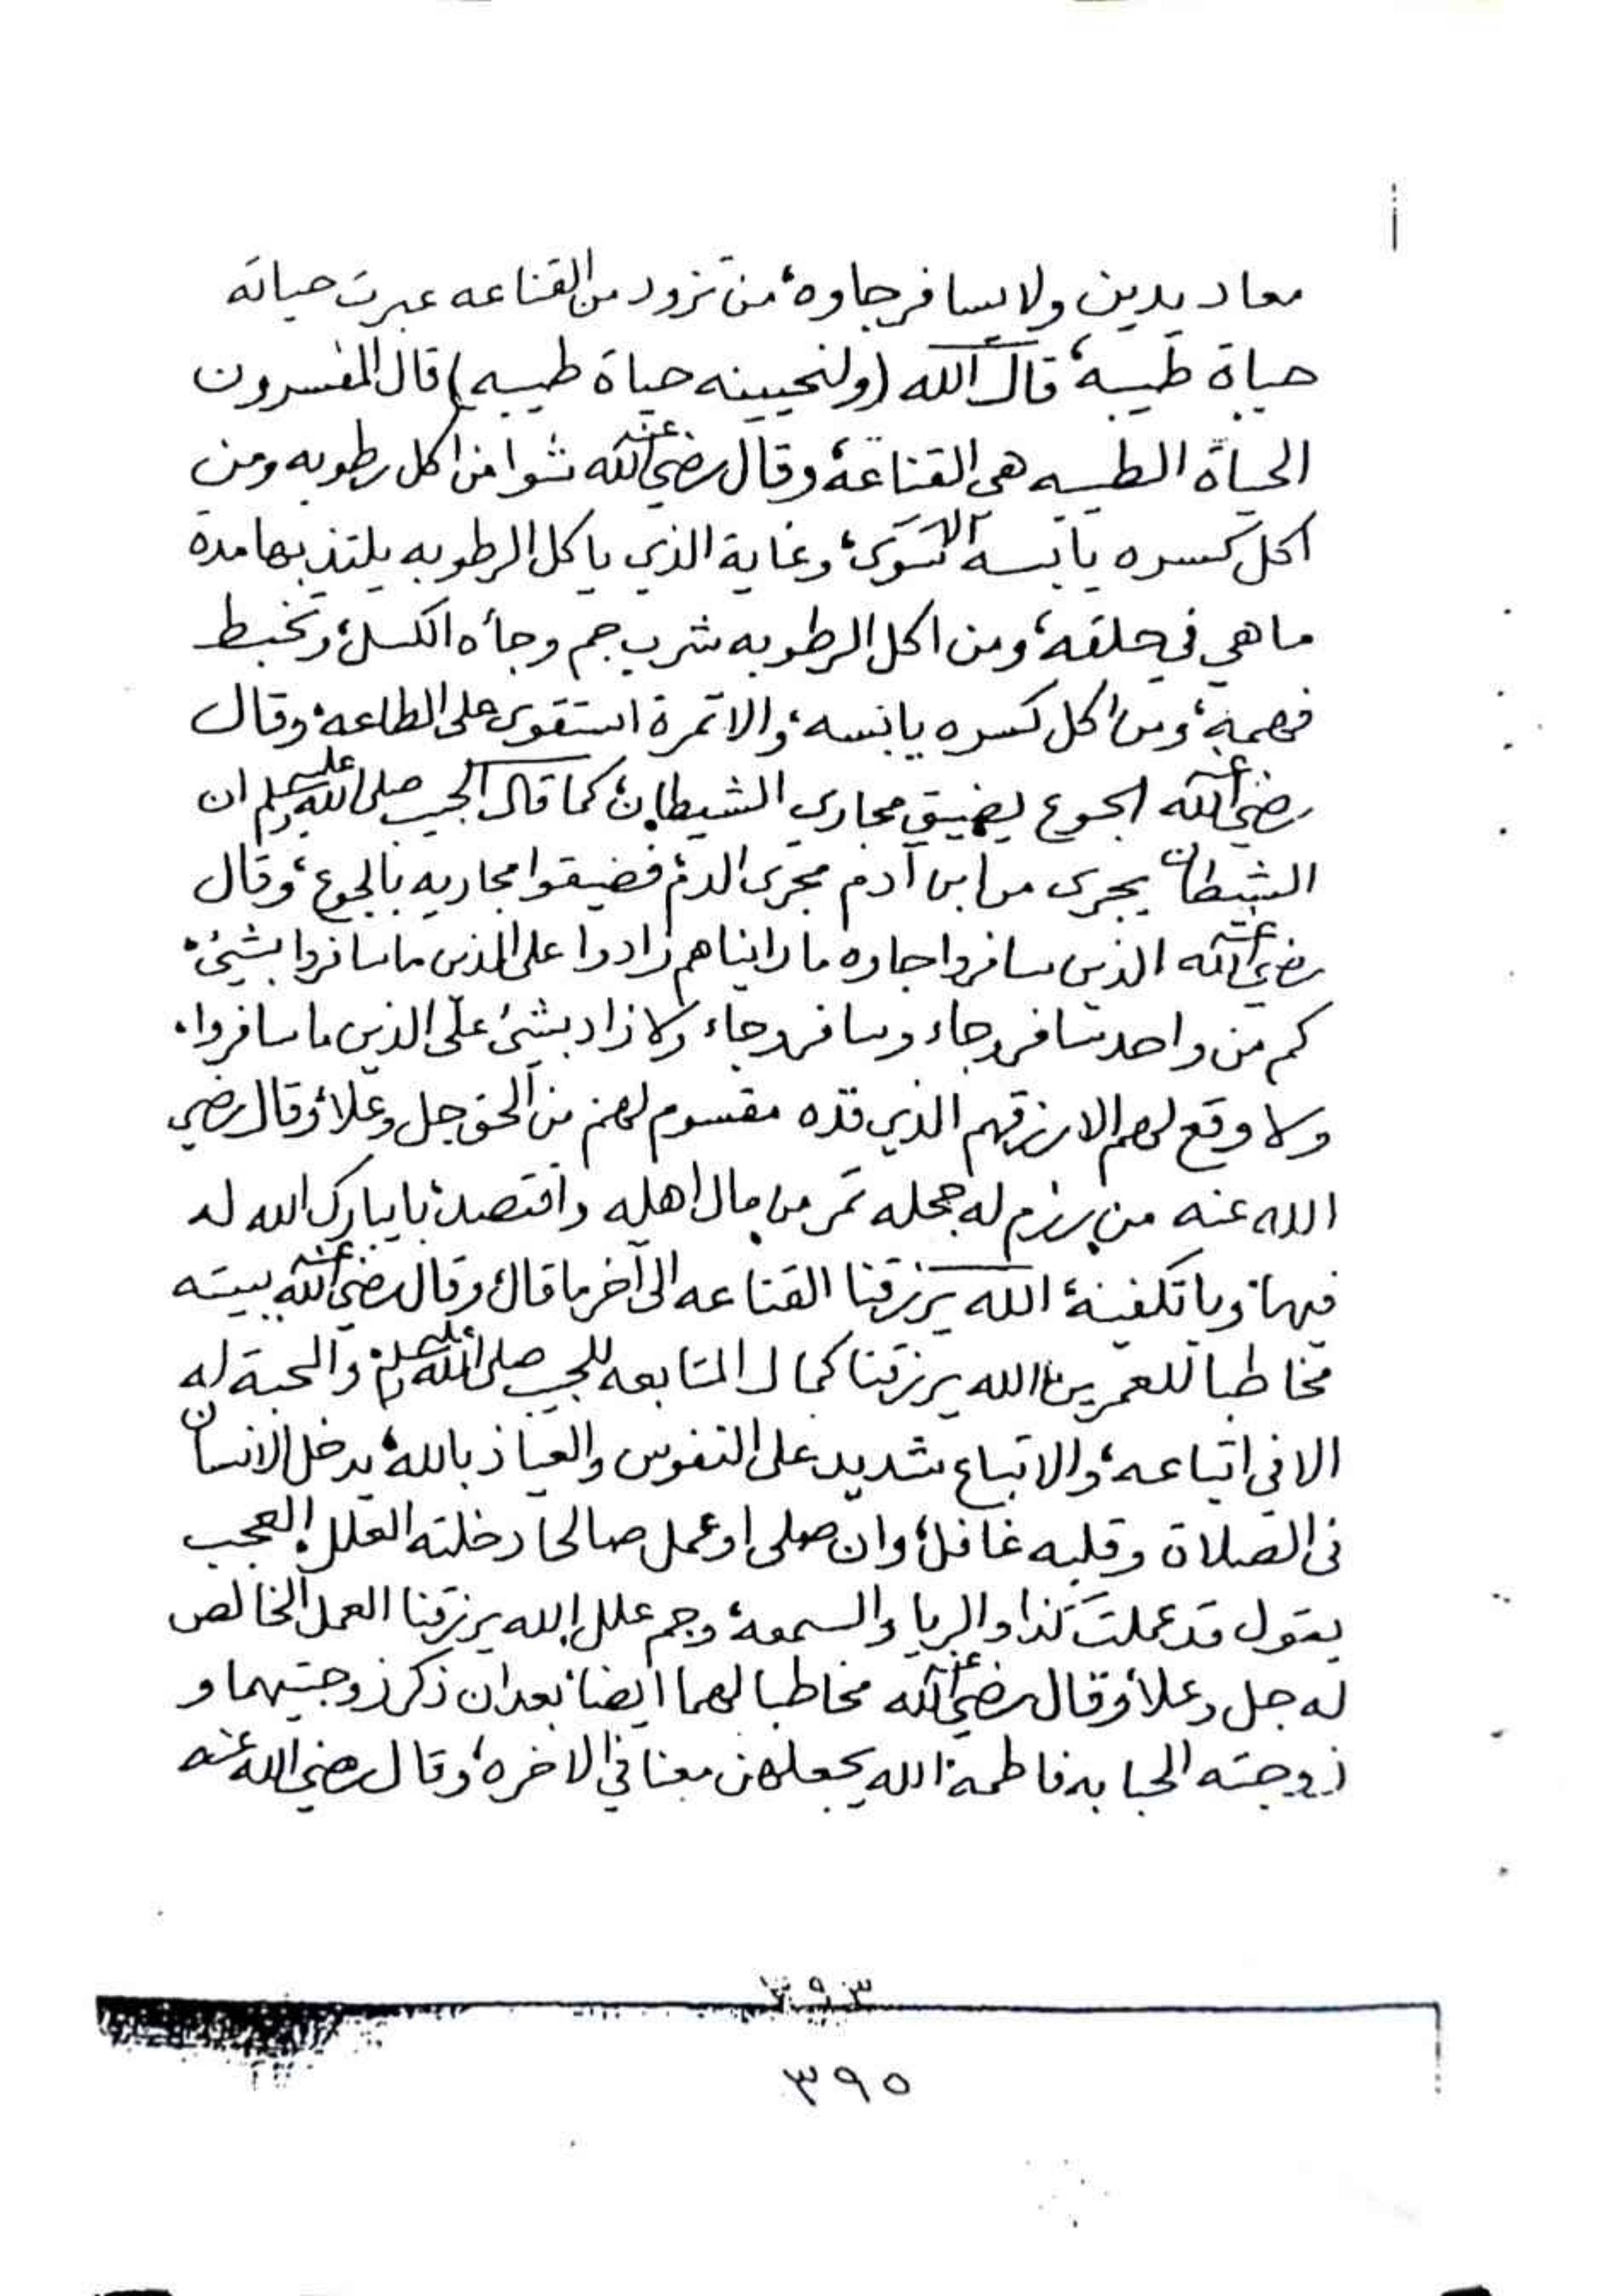 معاد يدين ولا يسافر جاوه، من تزود من القناعه عبرت حياته
حياة طيبه، قال الله (ولنحيينه حياة طيبه) قال المفسرون
الحياة الطيبه هي القناعة، وقال رضي الله عنه شوا من اكل رطوبه ومن
اكل كسره يابسه الا سَوَى، وغاية الذي ياكل الرطوبه يلتذ بها مدة
ما هي في حلقه، ومن اكل الرطوبه شرب جم وجأه الكسل، وتخبط
فهمه، ومن اكل كسره يابسه، والا تمرة استقوى على الطاعه، وقال
رضي الله عنه الجوع يضيق مجاري الشيطان، كما قال الحبيب صلى الله عليه وسلم ان
الشيطان يجري من ابن آدم مجرى الدم، فضيقوا مجاريه بالجوع، وقال
رضي الله عنه الذين سافروا جاوه ما رايناهم زادوا على الذين ما سافروا بشيئ،
كم من واحد سافر وجاء وسافر وجاء ولا زاد بشئ على الذين ما سافروا،
ولا وقع لهم الا رزقهم الذي قده مقسوم لهم من الحق جل وعلا، وقال رضي
الله عنه من رزم له جحله تمر من مال اهله واقتصد، با يبارك الله له
فيها، وبا تكفينه، الله يرزقنا القناعه الى آخر ما قال، وقال رضي الله عنه ببيته
مخاطبا للعمرين، الله يرزقنا كمال المتابعه للحبيب صلى الله عليه وسلم، والمحبة له
الا في اتباعه، والاتباع شديد على النفوس والعياذ بالله، يدخل الانسان
في الصلاة وقلبه غافل، وان صلى او عمل صالحا دخلته العلل، العجب
يقول قد عملت كذا والريا والسمعه، وجم علل، الله يرزقنا العمل الخالص
له جل وعلا، وقال رضي الله عنه مخاطبا لهما ايضا، بعد ان ذكر زوجتيهما و
زوجته الحبابه فاطمه، الله يجعلهن معنا في الاخره، وقال رضي الله عنه
٣٩٣
٣٩٥